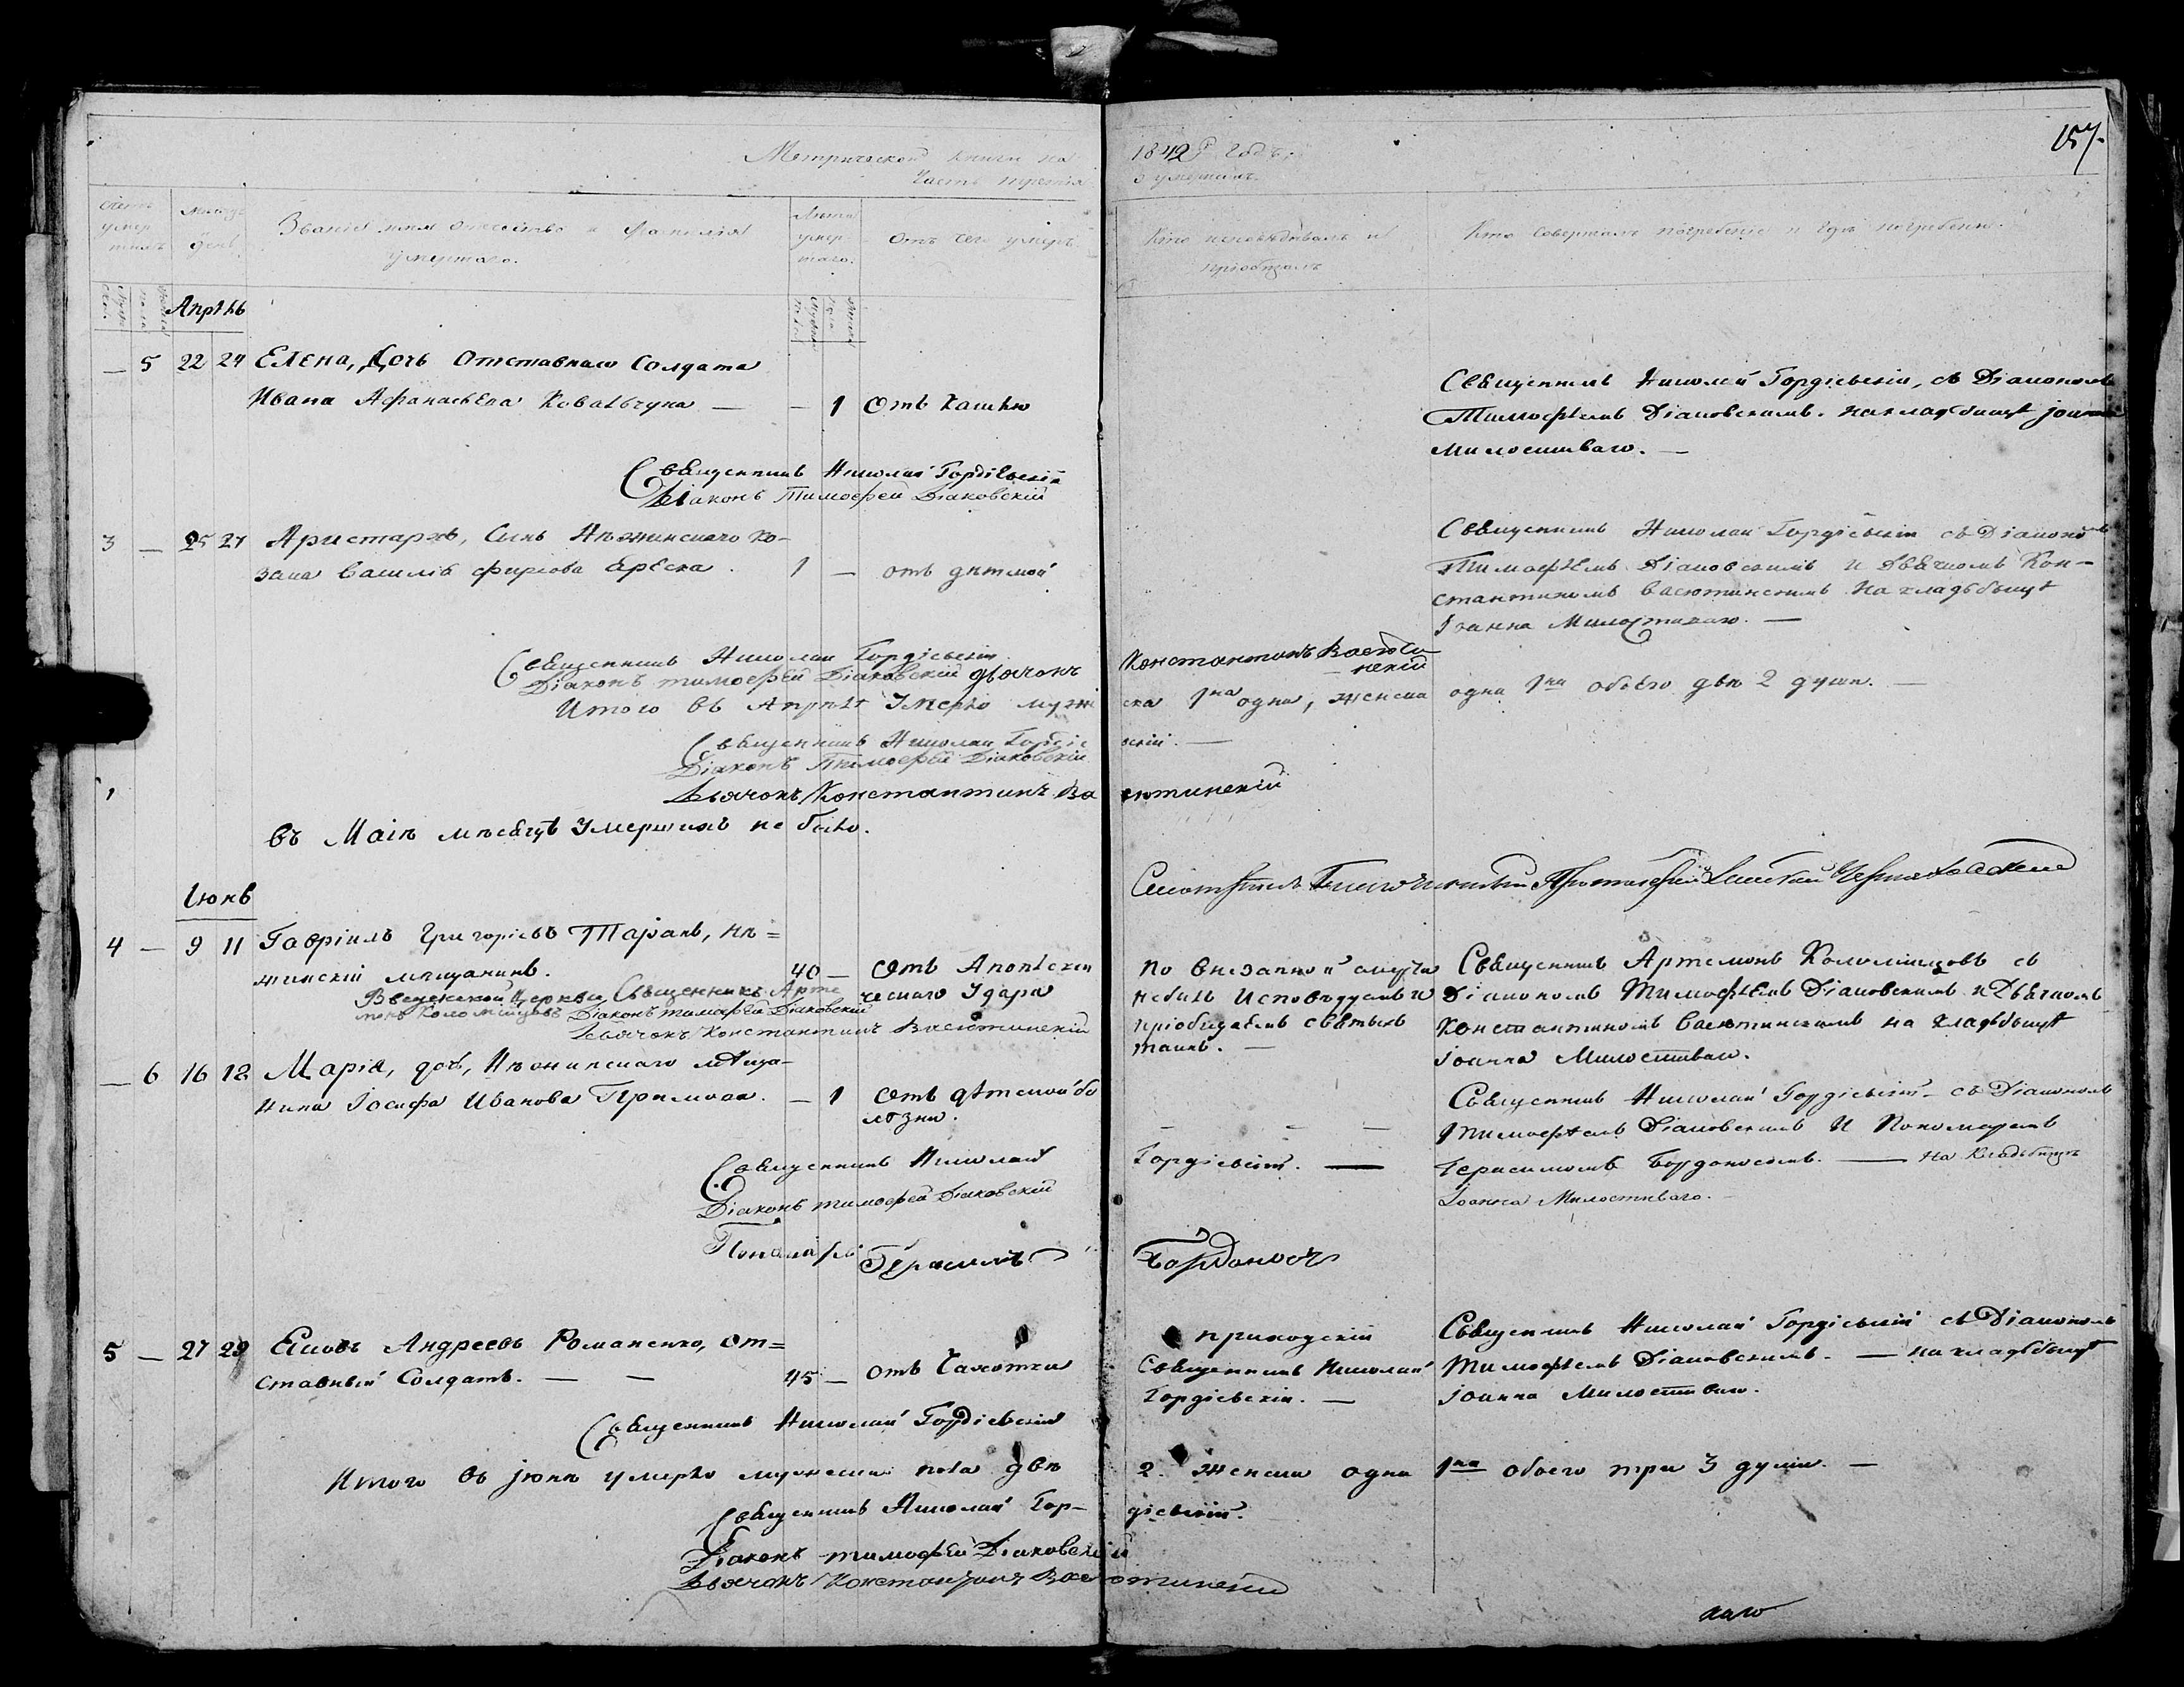 Метрической книги на 1842й годъ,
Часть третія о умершихъ.
157.
Счетъ умершихъ
Мѣсяцъ день
Званіе имя отчество и фамилія умершаго.
Лѣта умершаго.
Отъ чего умеръ
Кто исповѣдывалъ и пріобщалъ
Кто совершалъ погребеніе и гдѣ погребены.
Апрѣль
— 5 22 24 Елена, Дочь Отставнаго Солдата
Ивана Афанасьева Ковальчука — — 1 Отъ Кашлю
Священникъ Николай Гордіевскій, съ Діакономъ
Тимофѣемъ Діаковскимъ. на кладбищѣ
Милостиваго. —
Священникъ Николай Гордіевскій
Діаконъ Тимоефей Діаковскій
3 — 25 27 Аристархъ, Сынъ Нѣжинскаго Ко-
зака Василія Фирсова Ереска. 1 — отъ дѣтской
Священникъ Николай Гордіевскій съ Діакономъ
Тимоефѣемъ Діаковскимъ и Дьячкомъ Кон-
стантиномъ Васютинскимъ на кладьбищѣ
Іоанна Милостиваго. —
Священникъ Николай Гордіевскій
Діаконъ тимоефей Діаковскій дьячокъ Константинъ Васютинскій
Итого въ Апрѣлѣ Умерло мужеска 1на одна, женска одна 1на обоего двѣ 2 души. —
Священникъ Николай Гордіевскій. —
Діаконъ Тимоефей Діаковскій
Дьячокъ Константинъ Васютинскій
въ Маіѣ мѣсяцѣ Умершихъ не было.
Іюнь
4 — 9 11 Гавріилъ Григоріевъ Таранъ, нѣ=
жинскій мѣщанинъ. 40 — Отъ Апоплекси
ческаго Удара
По внезапной смерти
небылъ Исповѣдуемъ и
пріобщаемъ святыхъ
таинъ. —
Священникъ Артемонъ Коломійцовъ съ
Діакономъ Тимофѣемъ Діаковскимъ и Дьячкомъ
Константиномъ Васютинскимъ на кладьбищѣ
Іоанна Милостиваго.
Церкви Священникъ Арте
монъ Коломійцовъ Діаконъ тимоефей Діаковскій
Дьячокъ Константинъ Васютинскій
— 6 16 18 Марія, дочь, Нѣжинскаго мѣща-
нина Іосифа Иванова Примака. — 1 Отъ дѣтской бо
лѣзни.
Священникъ Николай Гордіевскій съ Діакономъ
Тимоефѣемъ Діаковскимъ и Пономаремъ
Герасимомъ Бордоносомъ. — на Кладьбищѣ
Іоанна Милостиваго.
Священникъ Николай Гордіевскій. —
Діаконъ тимоефей Діаковскій
Пономарь Герасимъ Бордоносъ
5 — 27 29 Яковъ Андреевъ Романенко, от=
ставный Солдатъ. — — 45 — отъ Чахотки
приходскій
Священникъ Николай
Гордіевскій. —
Священникъ Николай Гордіевскій съ Діакономъ
Тимофѣемъ Діаковскимъ. — на кладьбищѣ
Іоанна Милостиваго.
Священникъ Николай Гордіевскій
Итого въ іюнѣ умерло мужеска пола двѣ 2. женска одна 1на обоего три 3 души. —
Священникъ Николай Гордіевскій.
Діаконъ тимоефей Діаковскій
Дьячокъ Константинъ Васютинскій